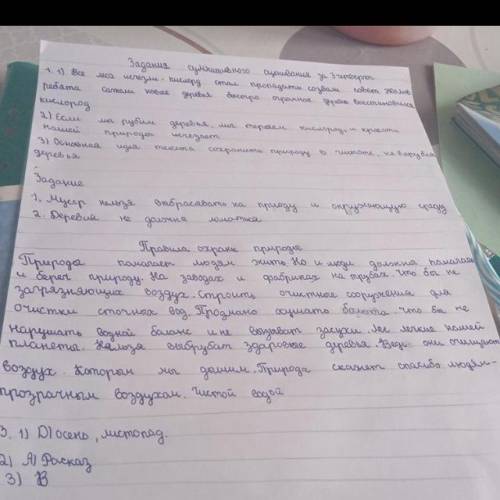 Задания суммативного оценивания за 3 четверть
1. 1) Все леса исчезли. кислород стал пропадать созвали совет Жалов
ребята сажали новые деревья быстро огромное дерево восстановился
кислород
2) Если мы рубим деревья, мы теряем кислород, и красоту
нашей природы исчезает
3) Основная идея текста сохранить природу в чистоте, не вырубать
деревья
Задание
1. Мусор нельзя выбрасывать на природу и окружающую среду
2. Деревья не должна ломатся
Правила охраны природы
Природа помагает людям жить. Но и люди должна помагать
и берег природу. На заводах и фабриках на трубах. Что бы не
загрязняющих воздух. Строить очистные сооружения для
очистки сточных вод. Продмано осушать болота. что бы не
нарушать водной баланс и не вызывать засухи. Лес легкие нашей
планеты. Нельзя выбрубат здаровые деревья. Ведь они очищают
воздух. Которым мы дашим. Природа скажет спасибо людям-
прозрачным воздухом. Чистой водой
3. 1) D) осень, листопад.
2) A) Расказ
3) B